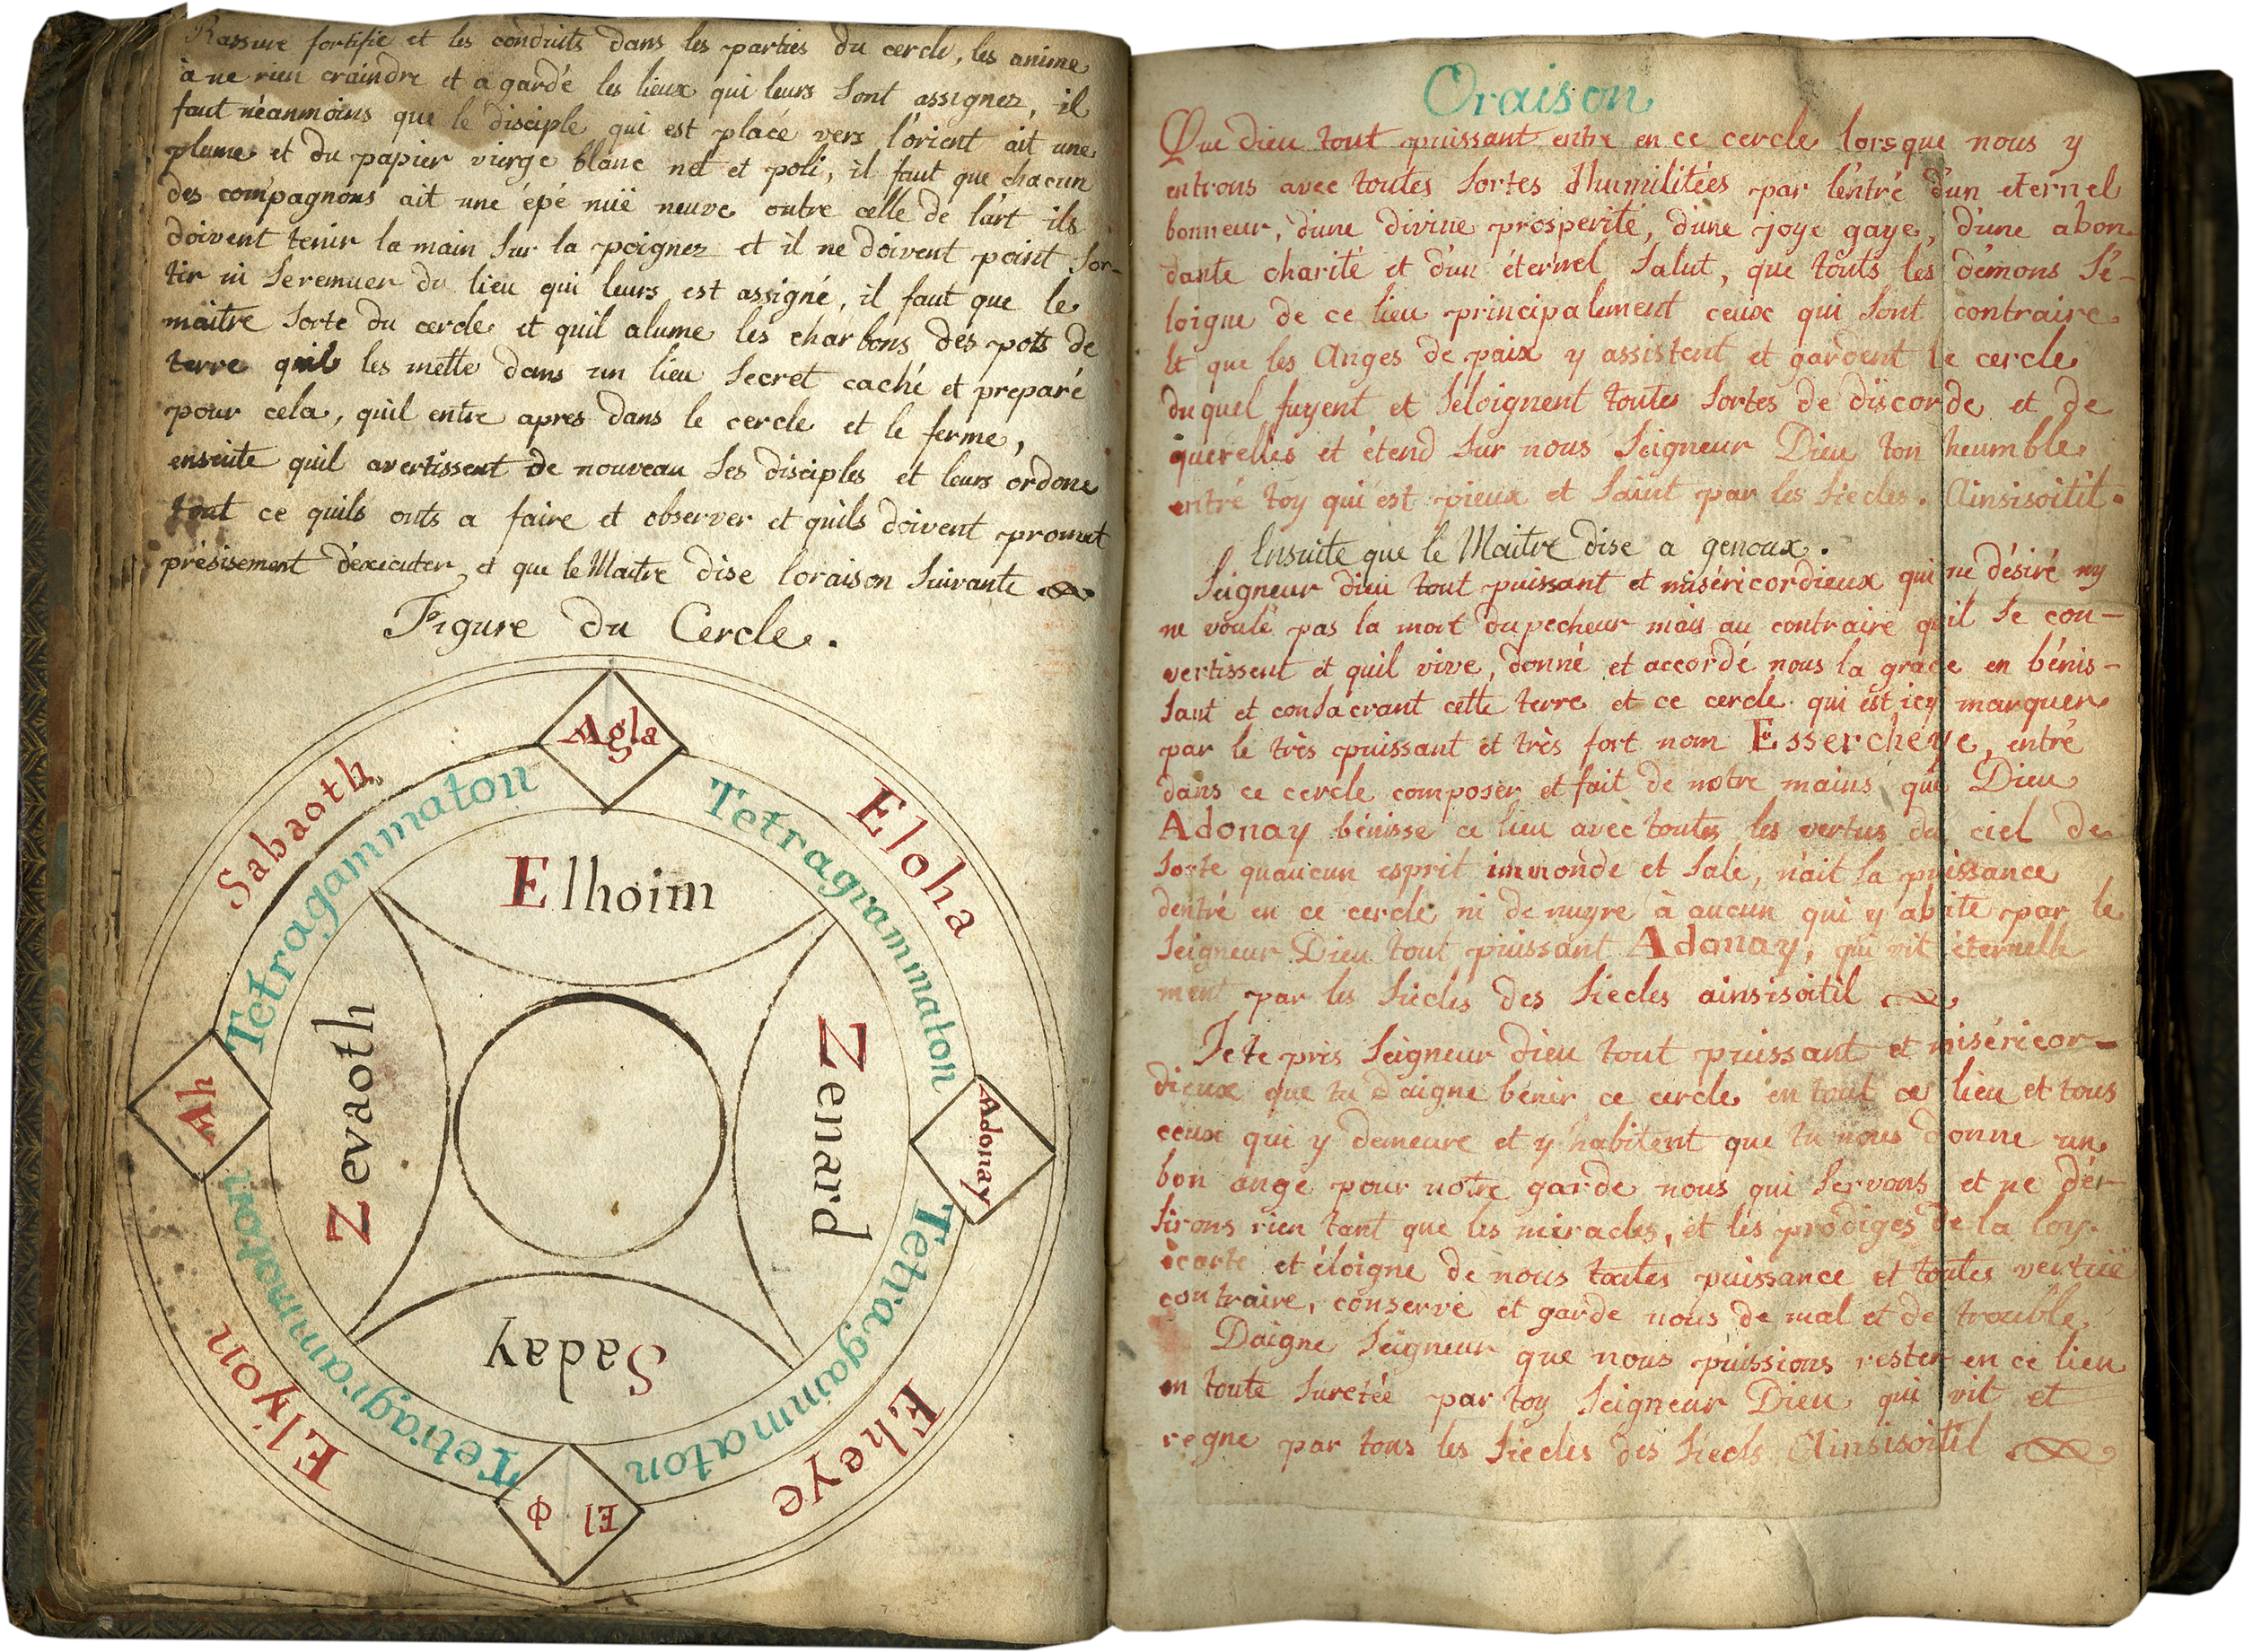 Rassure fortifie et les conduits dans les parties du cercle, les anime
à ne rien craindre et a gardé les lieux qui leurs sont assignez, il
faut néanmoins que le disciple qui est placé vers l'orient ait une
plume et du papier vierge blanc net et poli, il faut que chacun
des compagnons ait une épé nüe neuve outre celle de l'art ils
doivent tenir la main sur la poignez et il ne doivent point sor-
tir ni se remuer du lieu qui leurs est assigné, il faut que le
maitre sorte du cercle et quil alume les charbons des pots de
terre quil les mette dans un lieu secret caché et preparé
pour cela, quil entre apres dans le cercle et le ferme,
ensuite quil avertissent de nouveau ses disciples et leurs ordone
tout ce quils onts a faire et observer et quils doivent promet
présisement d'executer et que le Maitre dise loraison suivante
Figure du Cercle.
Agla
Sabaoth
Eloha
Tetragammaton
Tetragrammaton
Elhoim
Zevaoth
Zenard
Ah
Adonay
Saday
Tetragrammaton
Tetragammaton
Elyon
Eheye
El Φ
Oraison
Que dieu tout puissant entre en ce cercle lorsque nous y
entrons avec toutes sortes d'humilitées par l'éntré d'un eternel
bonneur, d'une divine prosperité, d'une joye gaye, d'une abon
dante charité et d'un éternel salut, que touts les démons s'é-
loigne de ce lieu principalement ceux qui sont contraire
et que les Anges de paix y assistent et gardent le cercle
duquel fuyent et s'éloignent toutes sortes de discorde et de
querelles et étend sur nous Seigneur Dieu ton heumble
entré toy qui est pieux et saint par les siecles. Ainsisoitil.
Ensuite que le Maitre dise a genoux.
Seigneur dieu tout puissant et miséricordieux qui ne désiré ny
ne voulé pas la mort du pecheur mais au contraire quil se con-
vertissent et quil vive, donné et accordé nous la grace en bénis-
sant et consacrant cette terre et ce cercle qui est icy marquer
par le très puissant et très fort nom Essercheye, entré
dans ce cercle composer et fait de notre mains que Dieu
Adonay bénisse ce lieu avec toutes les vertus du ciel de
sorte quaucun esprit immonde et sale, n'ait la puissance
dentré en ce cercle ni de nuyre à aucun qui y abite par le
Seigneur Dieu tout puissant Adonay, qui vit éternelle
ment par les siècles des siecles ainsisoitil
Je te pris Seigneur dieu tout puissant et miséricor-
dieux que tu daigne bénir ce cercle en tout ce lieu et tous
ceux qui y demeure et y habitent que tu nous donne un
bon ange pour notre garde nous qui servons et ne dér-
sirons rien tant que les miracles, et les prodiges de la loy.
écarte et éloigne de nous toutes puissance et toutes vertüe
contraire, conserve et garde nous de mal et de trouble
Daigne Seigneur que nous puissions rester en ce lieu
en toute suretée par toy Seigneur Dieu qui vit et
regne par tous les siecles des siecls Ainsisoitil